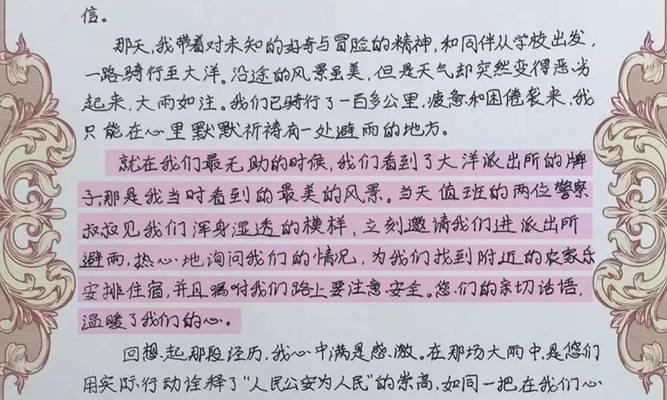 信。
那天,我带着对未知的好奇与冒险的精神,和同伴从学校出发,
一路骑行至大洋。沿途的风景虽美,但是天气却突然变得恶劣
起来,大雨如注。我们已骑行了一百多公里,疲惫和困倦袭来,我
只能在心里默默祈祷有一处避雨的地方。
就在我们最无助的时候,我们看到了大洋派出所的牌
子,那是我当时看到的最美的风景。当天值班的两位警察
叔叔见我们浑身湿透的模样,立刻邀请我们进派出所
避雨,热心地询问我们的情况,为我们找到附近的农家乐
安排住宿,并且嘱咐我们路上要注意安全。您们的亲切话语,
温暖了我们的心。
回想起那段经历,我心中满是感激。在那场大雨中,是您们
用实际行动诠释了“人民公安为人民”的崇高,如同一把在我们心